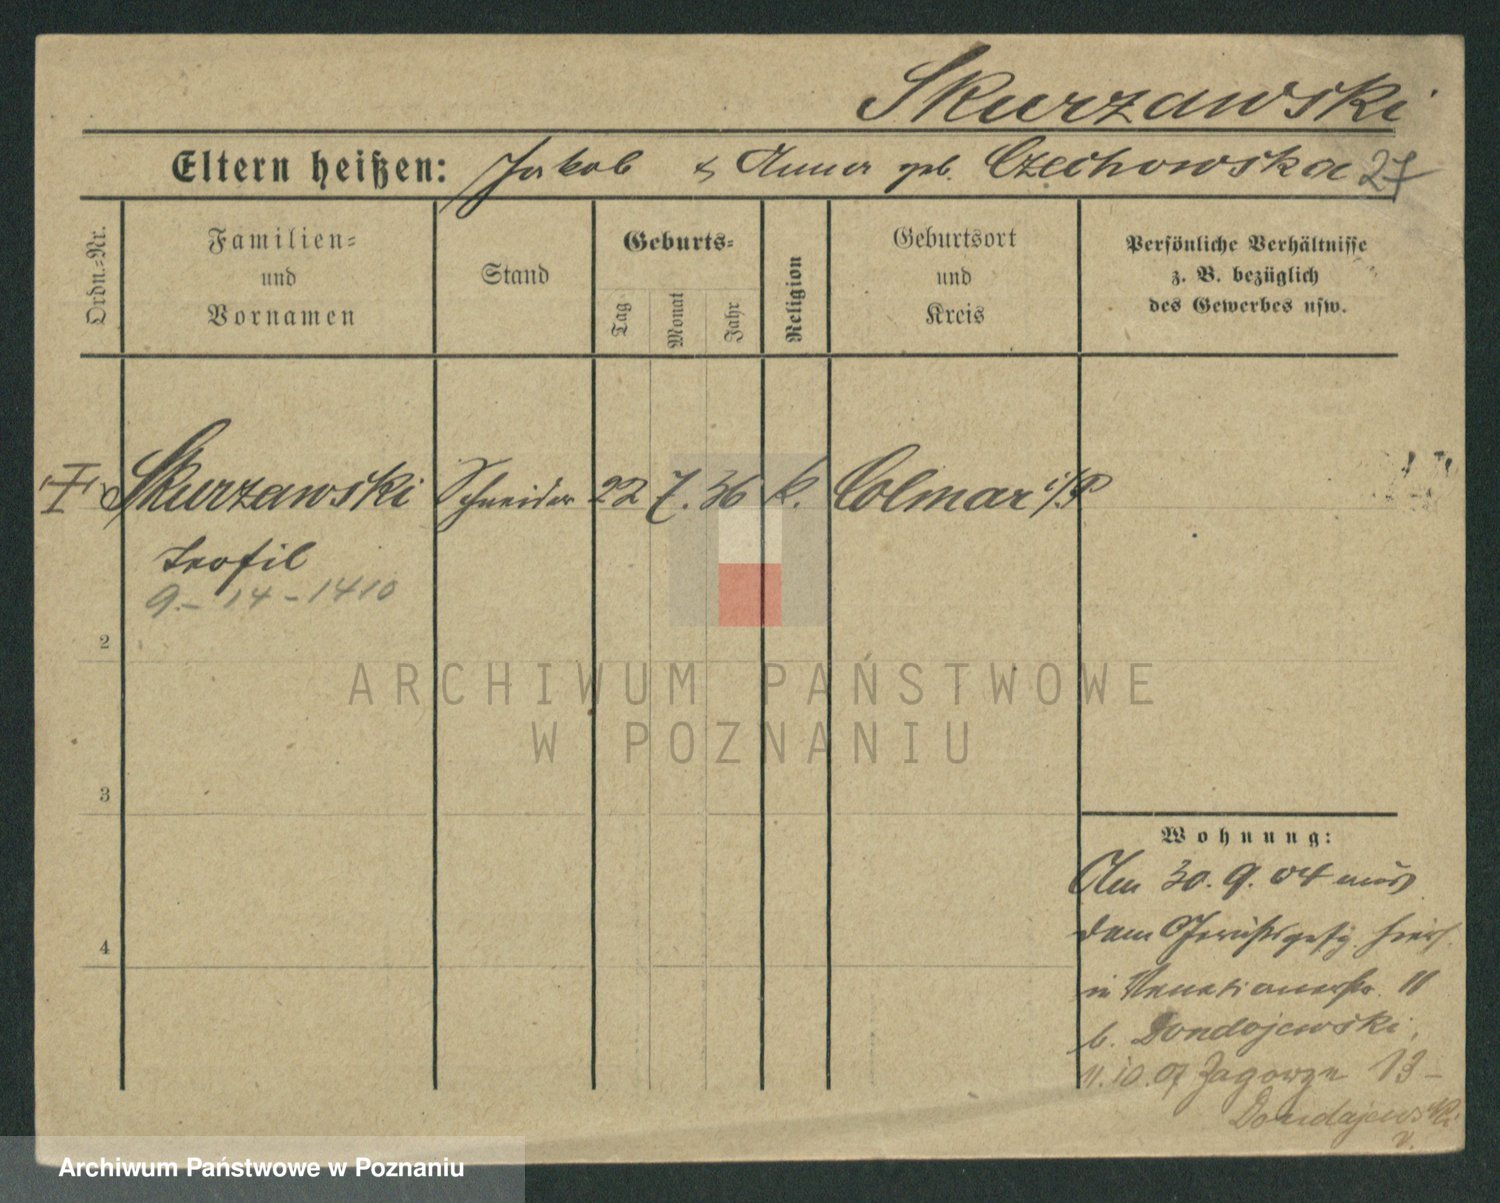 Skurzawski
Eltern heißen: Jakob & Anna geb. Czechowska 27
Ordn.-Nr.
Familien-
und
Vornamen
Stand
Geburts-
Tag
Monat
Jahr
Religion
Geburtsort
und
Kreis
Persönliche Verhältnisse
z. B. bezüglich
des Gewerbes usw.
Skurzawski Schneider 22 7. 36 k. Colmar i/P
Teofil
9.-14-1410
2
3
4
Wohnung:
Am 30. 9. 04 aus
dem hier
in Venetianerstr. 11
b. Dondajewski
11.10.07 Zagorze 13-
Dondajewski
ARCHIWUM PAŃSTWOWE
W POZNANIU
Archiwum Państwowe w Poznaniu